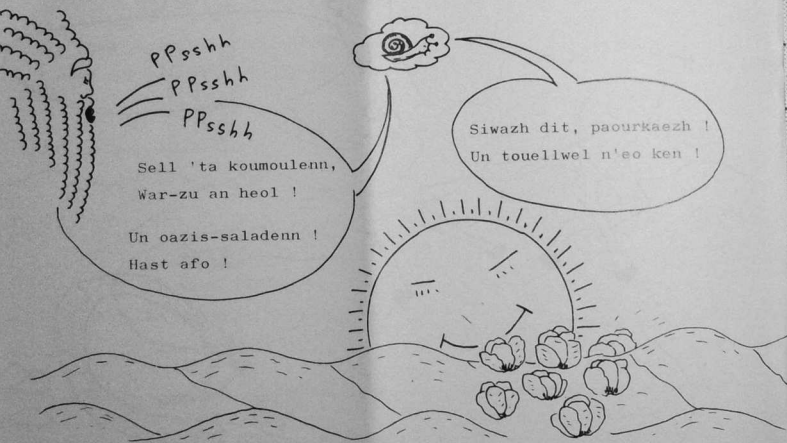 PPsshh
PPsshh
PPsshh
Sell 'ta koumoulenn,
War-zu an heol !
Un oazis-saladenn !
Hast afo !
Siwazh dit, paourkaezh !
Un touellwel n'eo ken !